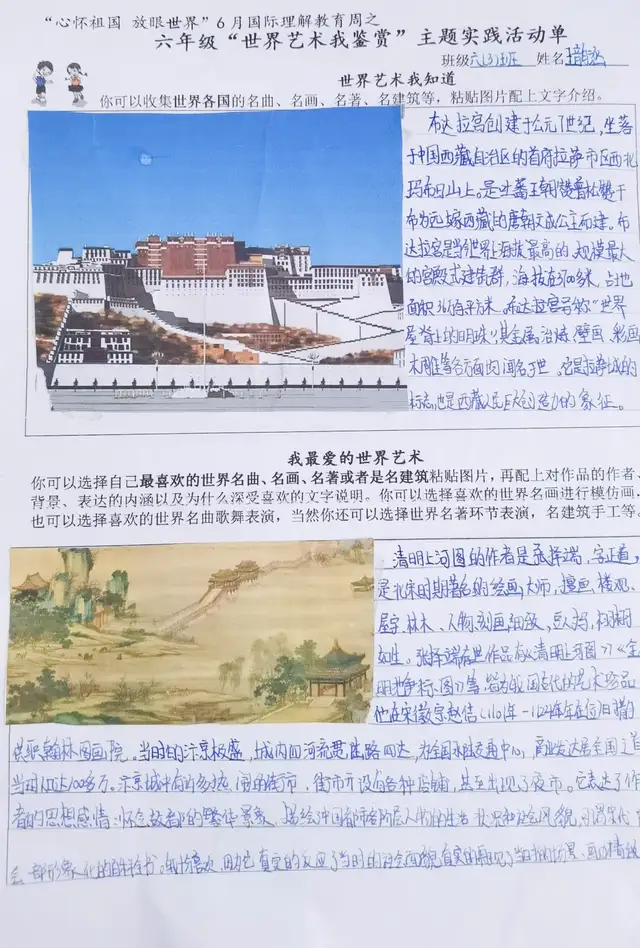 “心怀祖国 放眼世界”6月国际理解教育周之
六年级“世界艺术我鉴赏”主题实践活动单
班级六(3)班 姓名王
世界艺术我知道
你可以收集世界各国的名曲、名画、名著、名建筑等，粘贴图片配上文字介绍。
布达拉宫创建于公元7世纪，坐落
于中国西藏自治区的首府拉萨市区西北
玛布日山上。是吐蕃王朝赞普松赞干
布为迎娶西藏的唐朝文成公主而建。布
达拉宫是当今世界海拔最高的、规模最大
的宫殿式建筑群，海拔在3700多米，占地
面积36万余平方米。布达拉宫号称“世界
屋脊上的明珠”其金属冶炼、壁画、彩画
木雕等各方面闻名于世。它是拉萨城的
标志，也是西藏人民巨大创造力的象征。
我最爱的世界艺术
你可以选择自己最喜欢的世界名曲、名画、名著或者是名建筑粘贴图片，再配上对作品的作者、
背景、表达的内涵以及为什么深受喜欢的文字说明。你可以选择喜欢的世界名画进行模仿画，
也可以选择喜欢的世界名曲歌舞表演，当然你还可以选择世界名著环节表演，名建筑手工等。
清明上河图的作者是张择端，字正道，
是北宋时期著名的绘画大师，擅画楼观、
屋宇、林木、人物，刻画细致，栩栩
如生。张择端存世作品有《清明上河图》《金
明池争标图》等，皆为我国古代的艺术珍品
他在宋徽宗赵佶(1101年-1124年在位)时
供职翰林图画院。当时的汴京极盛，城内四河流贯，陆路四达，为全国水陆交通中心，商业发达居全国之首
当时人口达100多万。汴京城中有许多热闹的街市，街市开设有各种店铺，甚至出现了夜市。它表达了作
者的思想感情:怀念故都的繁华景象，描绘中国都市各阶层人物的生活状况和社会风貌，
会一部形象化的百科全书。我喜欢，因为它真实的反应了当时的社会面貌